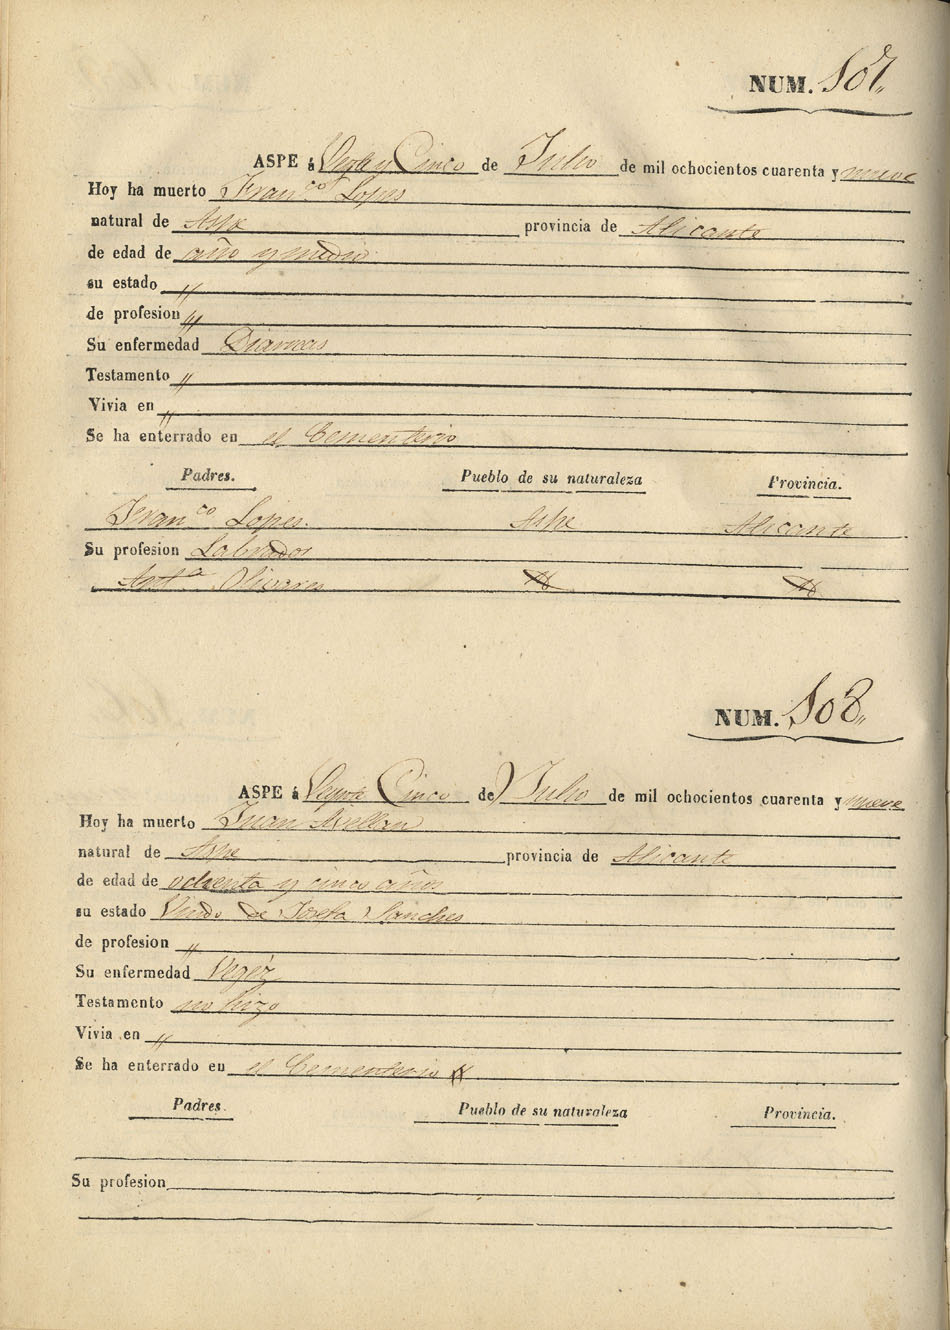 NUM. 107,,
ASPE á Veyte y Cinco de Julio de mil ochocientos cuarenta y nueve
Hoy ha muerto Franco Lopes
natural de Aspe provincia de Alicante
de edad de año y medio
su estado ,,
de profesion ,,
Su enfermedad Diarreas
Testamento ,,
Vivia en ,,
Se ha enterrado en el Cementerio
Padres. Pueblo de su naturaleza Provincia.
Franco Lopes. Aspe Alicante
Su profesion Labrador
Anta Olivares
NUM. 108,,
ASPE á Veynte Cinco de Julio de mil ochocientos cuarenta y nueve
Hoy ha muerto Juan Avellan
natural de Aspe provincia de Alicante
de edad de ochenta y cinco años
su estado Viudo de Josefa Sanches
de profesion ,,
Su enfermedad Vegéz
Testamento no hizo
Vivia en ,,
Se ha enterrado en el Cementerio
Padres. Pueblo de su naturaleza Provincia.
Su profesion